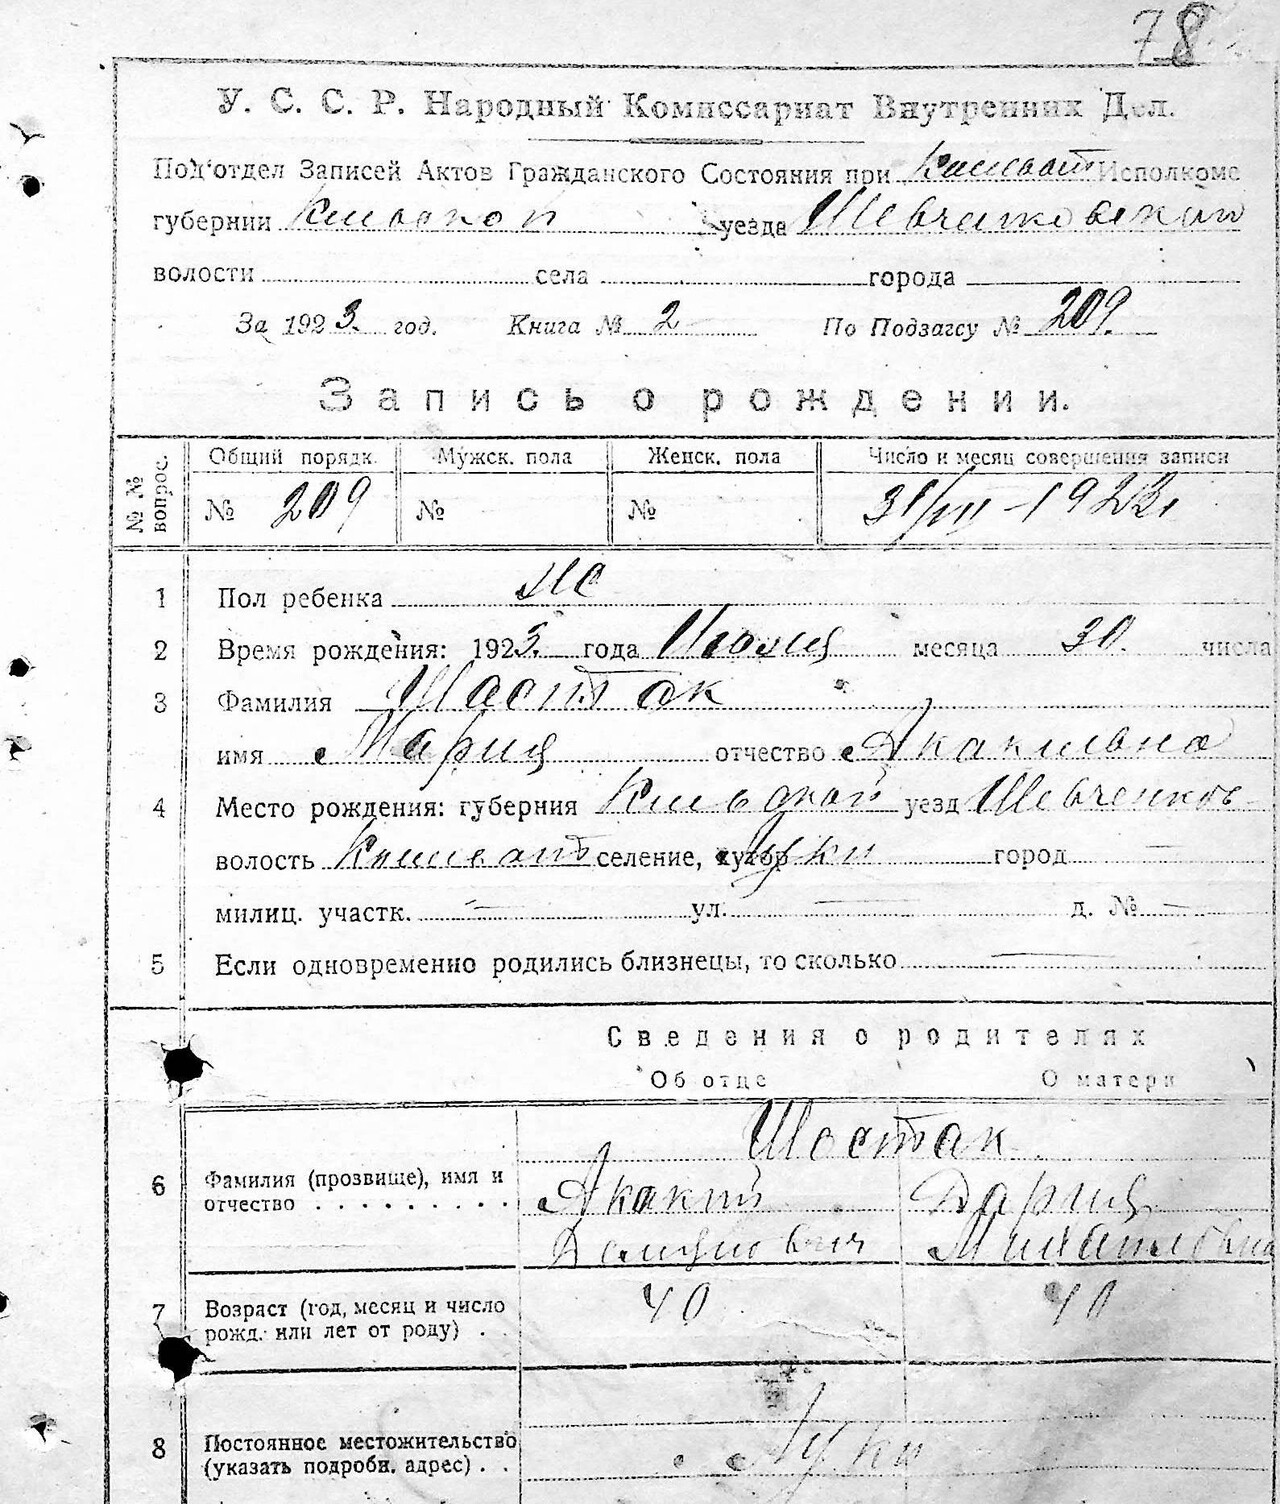 78
У. С. С. Р. Народный Комиссариат Внутренних Дел.
Под'отдел Записей Актов Гражданского Состояния при Кашеват Исполкоме
губернии Киевской уезда Шевченковского
волости села города
За 1923 год. Книга № 2 По Подзагсу № 209
Запись о рождении.
№ № вопрос. Общий порядк. Мужск. пола Женск. пола Число и месяц совершения записи
№ 209 № № 31/VII - 1923
1 Пол ребенка
2 Время рождения: 1923 года Июля месяца 30 числа
3 Фамилия Шостак
имя Мария отчество Акакиевна
4 Место рождения: губерния Киевской уезд Шевченков
волость Кашеват селение, хутор Луки город —
милиц. участк. — ул. — д. № —
5 Если одновременно родились близнецы, то сколько —
Сведения о родителях
Об отце О матери
Шостак
6 Фамилия (прозвище), имя и Акакий Дария
отчество . . . . . . . . . Михайловна
7 Возраст (год, месяц и число 40 40
рожд. или лет от роду) . .
8 Постоянное местожительство Луки
(указать подробн. адрес) . .